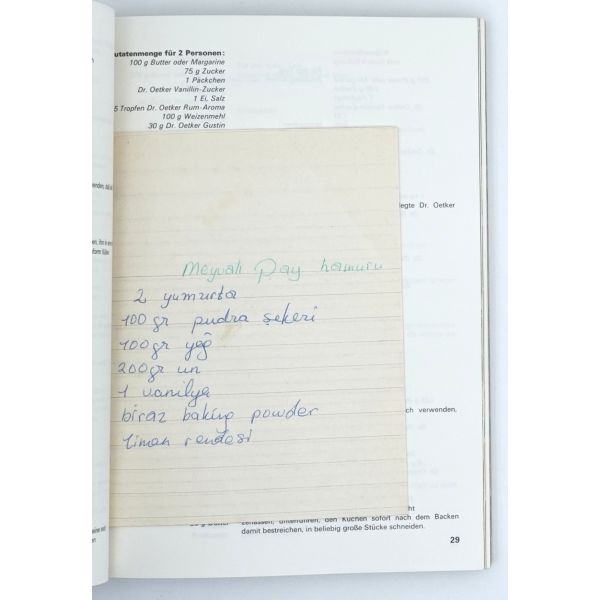 utatenmenge für 2 Personen:
100 g Butter oder Margarine
75 g Zucker
1 Päckchen
Dr. Oetker Vanillin-Zucker
1 Ei, Salz
5 Tropfen Dr. Oetker Rum-Aroma
100 g Weizenmehl
30 g Dr. Oetker Gustin
legte Dr. Oetker
Meyvalı Pay hamuru
2 yumurta
100 gr pudra şekeri
100 gr yağ
200 gr un
1 vanilya
biraz baking powder
liman rendesi
ch verwenden,
ht
zerlassen, unterrühren, den Kuchen sofort nach dem Backen
damit bestreichen, in beliebig große Stücke schneiden.
29